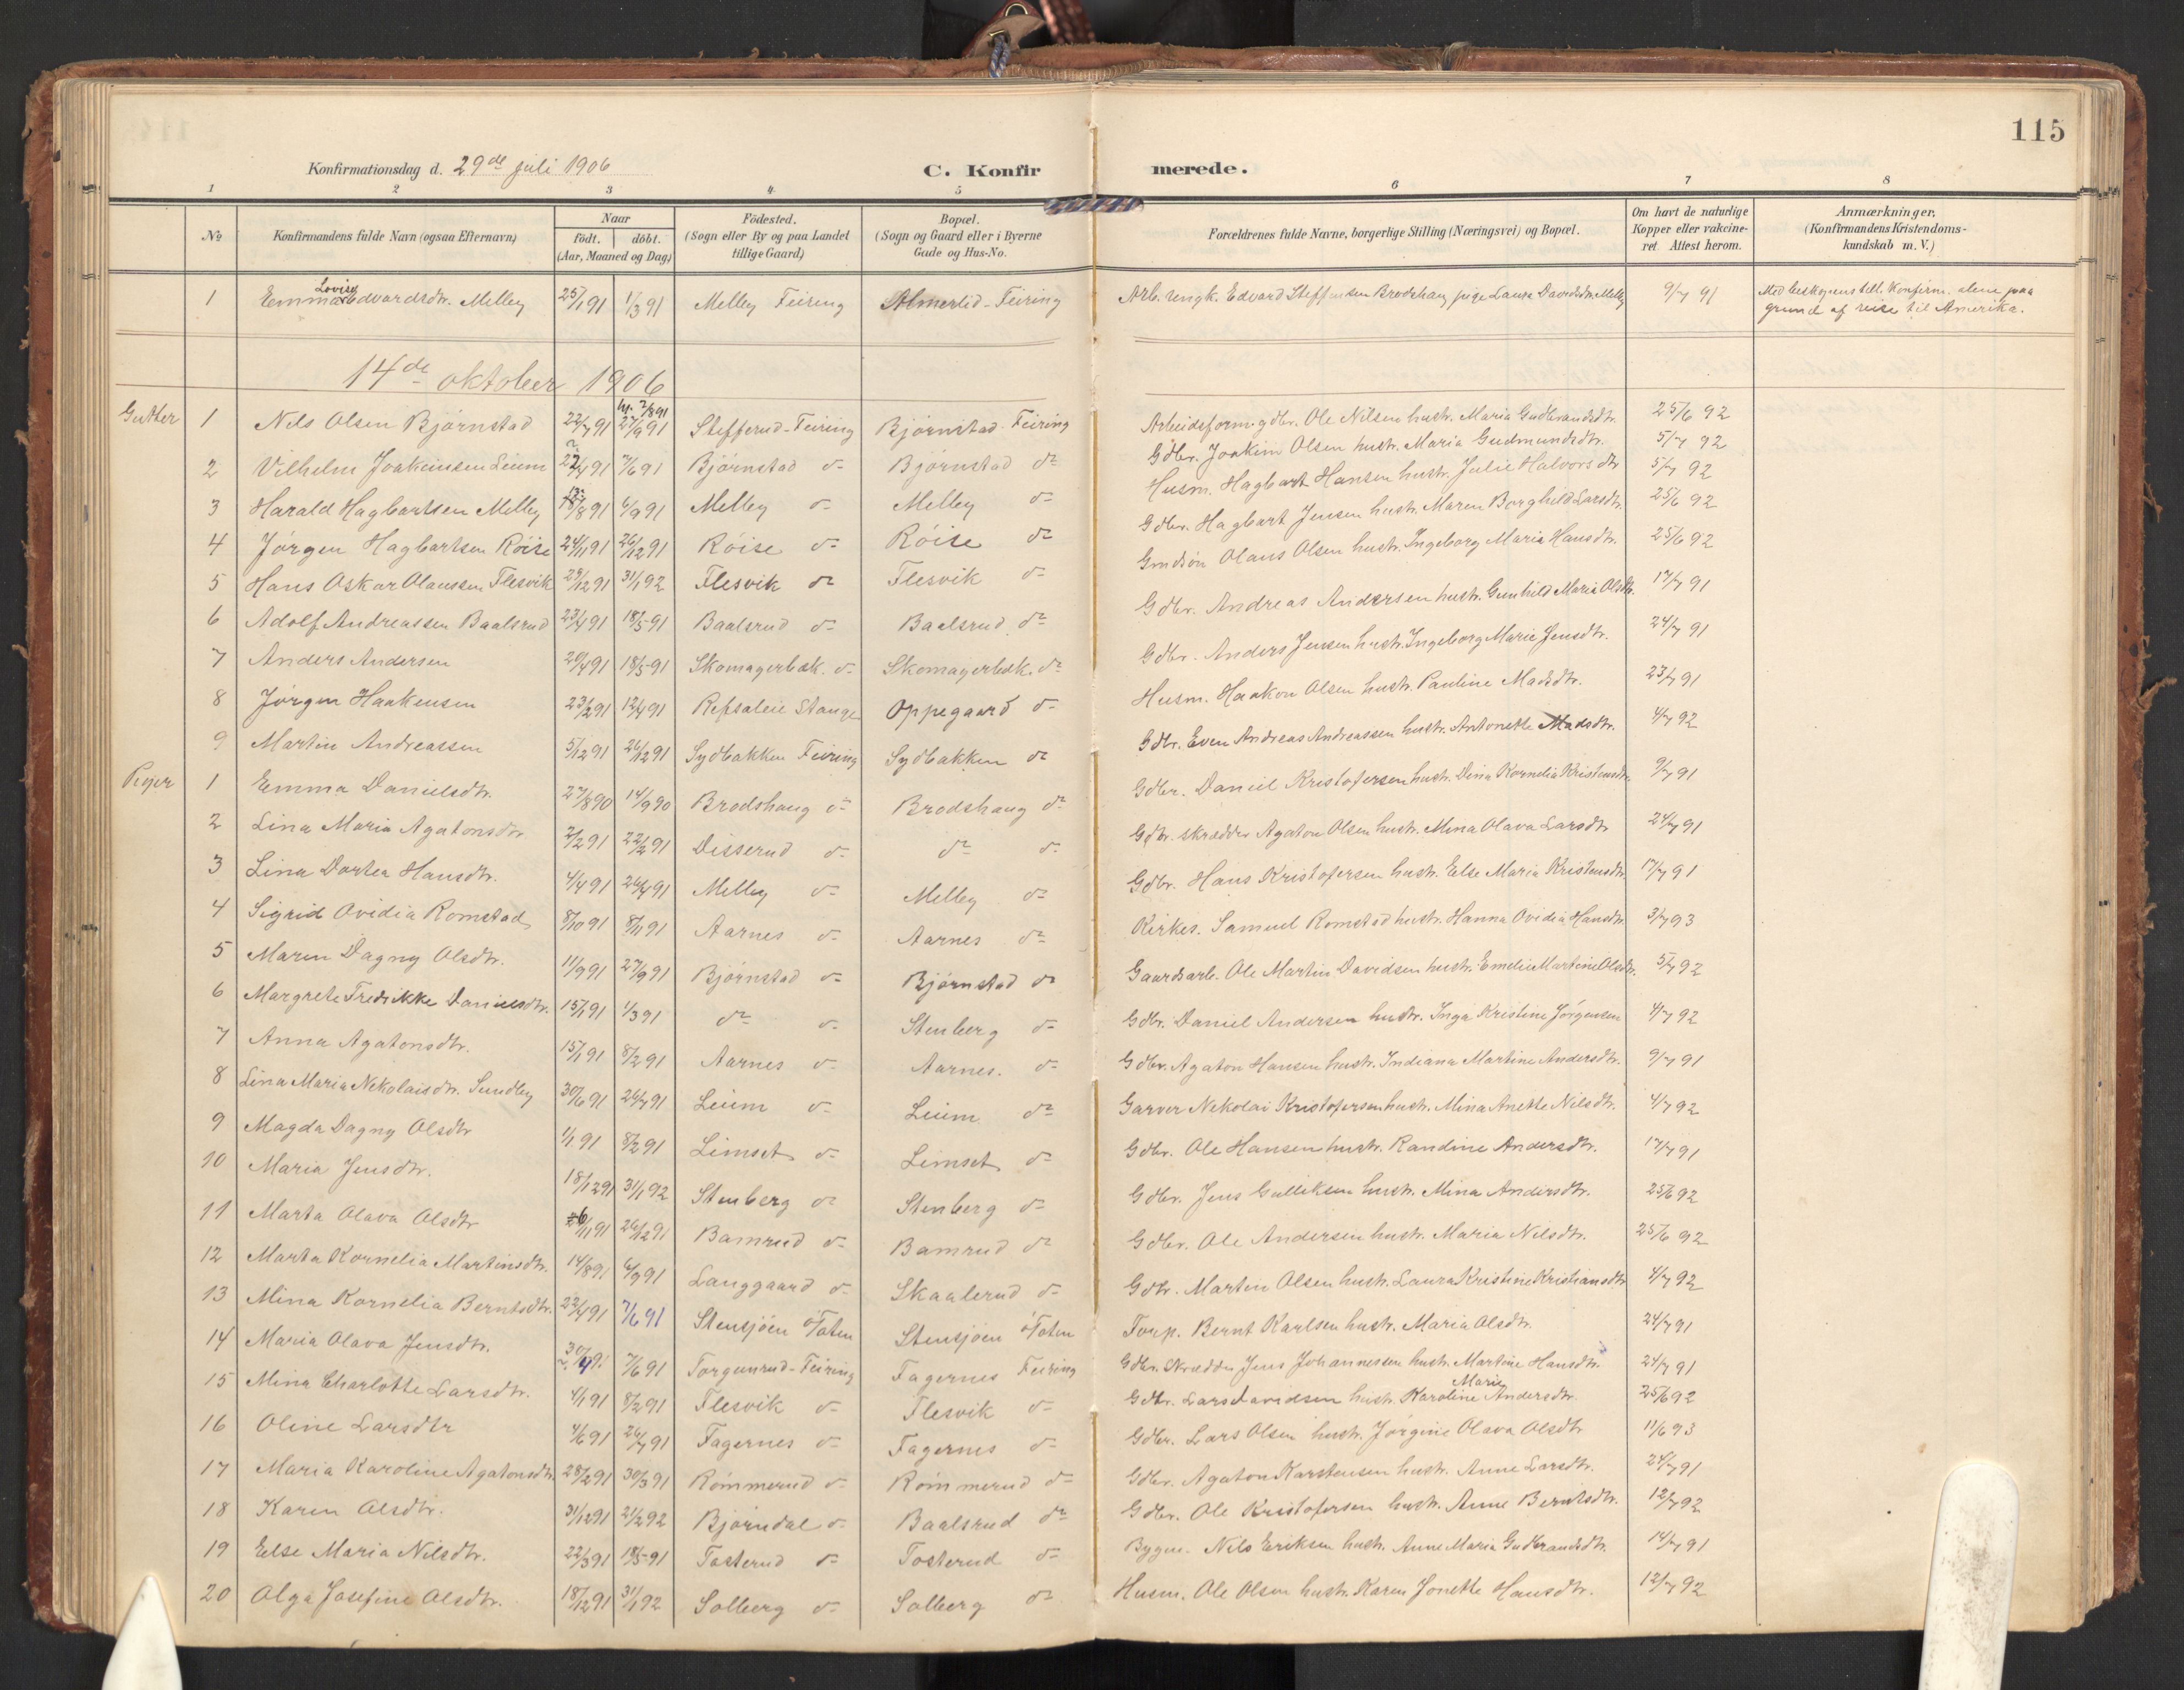 115
Konfirmationsdag d. 29de juli 1906
C. Konfirmerede.
1 2 3 4 5 6 7 8
No
Konfirmandens fulde Navn (ogsaa Efternavn)
Naar
födt. döbt.
(Aar, Maaned og Dag)
Födested.
(Sogn eller By og paa Landet
tillige Gaard)
Bopæl.
(Sogn og Gaard eller i Byerne
Gade og Hus-No.
Forældrenes fulde Navne, borgerlige Stilling (Næringsvei) og Bopæl.
Om havt de naturlige
Kopper eller vakcine-
ret. Attest herom.
Anmærkninger.
(Konfirmandens Kristendoms-
kundskab m. V.)
1 Emma Lovise Edvardsdtr. Melby 25/1 91 1/3 91 Melby Feiring Almerlid - Feiring Arb. ungk. Edvard Steffensen Brodshaug pige Laura Davidsdtr. Melby 9/7 91 Med biskopens till. Konfirm. alene paa
grund af reise til Amerika.
14de oktober 1906
Gutter 1 Nils Olsen Björnstad 22/7 91 27/9 91 hj. 2/8 91 Stefferud - Feiring Björnstad - Feiring Arbeidsform. gdbr. Ole Nilsen hustr. Maria Gudbrandsdtr. 25/6 92
2 Vilhelm Joakimsen Leium 22/4 91 7/6 91 Björnstad do Björnstad do Gdbr. Joakim Olsen hustr. Maria Gudmundsdtr. 5/7 92
3 Harald Hagbartsen Melby 18/8 91 6/9 91 Melby do Melby do Husm. Hagbart Hansen hustr. Julie Halvorsdtr 5/7 92
4 Jörgen Hagbartsen Röise 24/11 91 26/12 91 Röise do Röise do Gdbr. Hagbart Jensen hustr. Maren Borghild Larsdtr. 25/6 92
5 Hans Oskar Olaussen Flesvik 29/12 91 31/1 92 Flesvik do Flesvik do Grndsön Olaus Olsen hustr. Ingeborg Maria Hansdtr. 25/6 92
6 Adolf Andreassen Baalsrud 23/4 91 18/5 91 Baalsrud do Baalsrud do Gdbr. Andreas Andersen hustr. Gunhild Maria Olsdtr. 17/7 91
7 Anders Andersen 20/4 91 18/5 91 Skomagerbak. do Skomagerbak. do Gdbr. Anders Jensen hustr. Ingeborg Marie Jensdtr. 24/7 91
8 Jörgen Haakensen 23/2 91 12/4 91 Refsaleie Stange Oppegaard do Husm. Haakon Olsen hustr. Pauline Madsdtr. 23/7 91
9 Martin Andreassen 5/12 91 26/12 91 Sydbakken Feiring Sydbakken do Gdbr. Even Andreas Andreassen hustr. Antonette Madsdtr. 4/7 92
Piger 1 Emma Danielsdtr. 27/8 90 14/9 90 Brodshaug do Brodshaug do Gdbr. Daniel Kristofersen hustr. Dina Kornelia Kristensdtr. 9/7 91
2 Lina Maria Agatonsdtr 2/2 91 22/2 91 Disserud do do do Gdbr. skrædder Agaton Olsen hustr. Mina Olava Larsdtr 24/7 91
3 Lina Dortea Hansdtr. 4/4 91 26/4 91 Melby do Melby do Gdbr. Hans Kristofersen hustr. Else Maria Kristensdtr. 17/7 91
4 Sigrid Ovidia Romstad 8/10 91 8/11 91 Aarnes do Aarnes do Kirkes. Samuel Romstad hustr. Hanna Ovidia Hansdtr. 3/7 93
5 Maren Dagny Olsdtr. 11/9 91 27/9 91 Björnstad do Björnstad do Gaardsarb. Ole Martin Davidsen hustr. Emelie Martine Olsdtr. 5/7 92
6 Margrete Fredrikke Danielsdtr. 15/1 91 1/3 91 do do Stenberg do Gdbr. Daniel Andersen hustr. Inga Kristine Jörgensen 4/7 92
7 Anna Agatonsdtr. 15/1 91 8/2 91 Aarnes do Aarnes. do Gdbr. Agaton Hansen hustr. Indiana Martine Andersdtr. 9/7 91
8 Lina Maria Nekolaisdtr. Sundby 30/6 91 26/7 91 Leium do Leium do Garver Nekolai Kristofersen hustr. Mina Anette Nilsdtr. 4/7 92
9 Magda Dagny Olsdtr 1/1 91 8/2 91 Limset do Limset do Gdbr. Ole Hansen hustr. Randine Andersdtr. 17/7 91
10 Maria Jensdtr. 18/12 91 31/1 92 Stenberg do Stenberg do Gdbr. Jens Gulliksen hustr. Mina Andersdtr. 25/6 92
11 Marta Olava Olsdtr 6/11 91 26/12 91 Bamrud do Bamrud do Gdbr. Ole Andersen hustr. Maria Nilsdtr. 25/6 92
12 Marta Kornelia Martinsdtr. 14/8 91 6/9 91 Langgaard do Skaalerud do Gdbr. Martin Olsen hustr. Laura Kristine Kristiansdtr 4/7 92
13 Mina Kornelia Berntsdtr. 22/4 91 7/6 91 Stensjöen Ö Toten Stensjöen Ö Toten Torp. Bernt Karlsen hustr. Maria Olsdtr. 24/7 91
14 Maria Olava Jensdtr. 30/4 91 7/6 91 Torgunrud - Feiring Fagernes Feiring Gdbr. Skrædder Jens Johannessen hustr. Martine Hansdtr. 24/7 91
15 Mina Charlotte Larsdtr. 4/1 91 8/2 91 Flesvik do Flesvik do Gdbr. Lars Davidsen hustr. Karoline Marie Andersdtr. 25/6 92
16 Oline Larsdtr 4/6 91 26/7 91 Fagernes do Fagernes do Gdbr. Lars Olsen hustr. Jörgine Olava Olsdtr 11/6 93
17 Maria Karoline Agatonsdtr 28/2 91 30/3 91 Römmerud do Römmerud do Gdbr. Agaton Karstensen hustr. Anne Larsdtr. 24/7 91
18 Karen Olsdtr. 31/12 91 21/2 92 Björndal do Baalsrud do Gdbr. Ole Kristofersen hustr. Anne Berntsdtr. 12/7 92
19 Else Maria Nilsdtr. 22/3 91 18/5 91 Tosterud do Tosterud do Bygm. Nils Eriksen hustr. Anne Maria Gudbrandsdtr. 14/7 91
20 Olga Josefine Olsdtr. 18/12 91 31/1 92 Solberg do Solberg do Husm. Ole Olsen hustr. Karen Jonette Hansdtr. 12/7 92